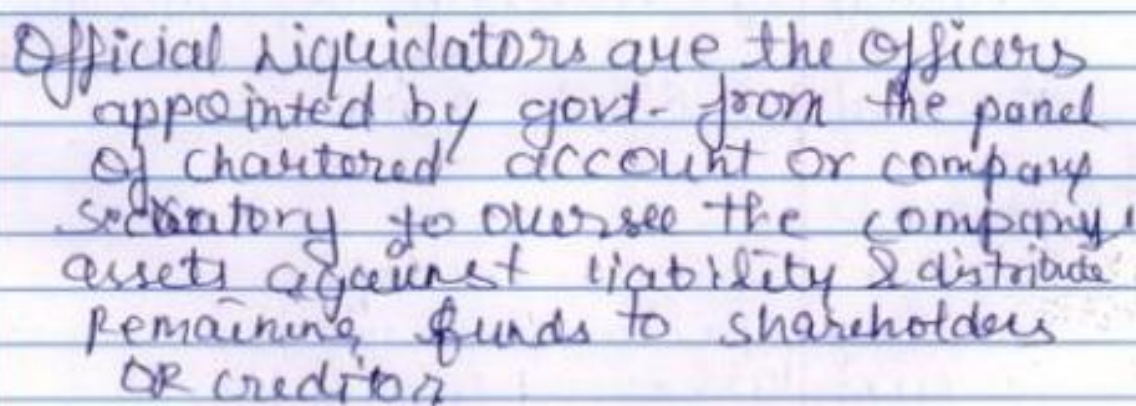 Official Liquidators are the Officers
appointed by govt. from the panel
Of Chartered account or company
secretory to oversee the company'
assets against liability & distribute
Remaining funds to shareholders
OR creditor